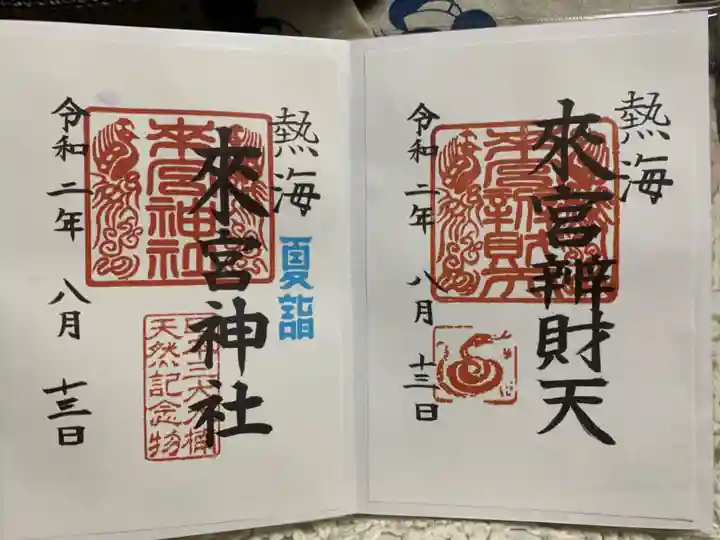 熱海
來宮辨財天
令和二年 八月 十三日
熱海
來宮神社
夏詣
來宮神社
天然記念物
令和二年 八月 十三日